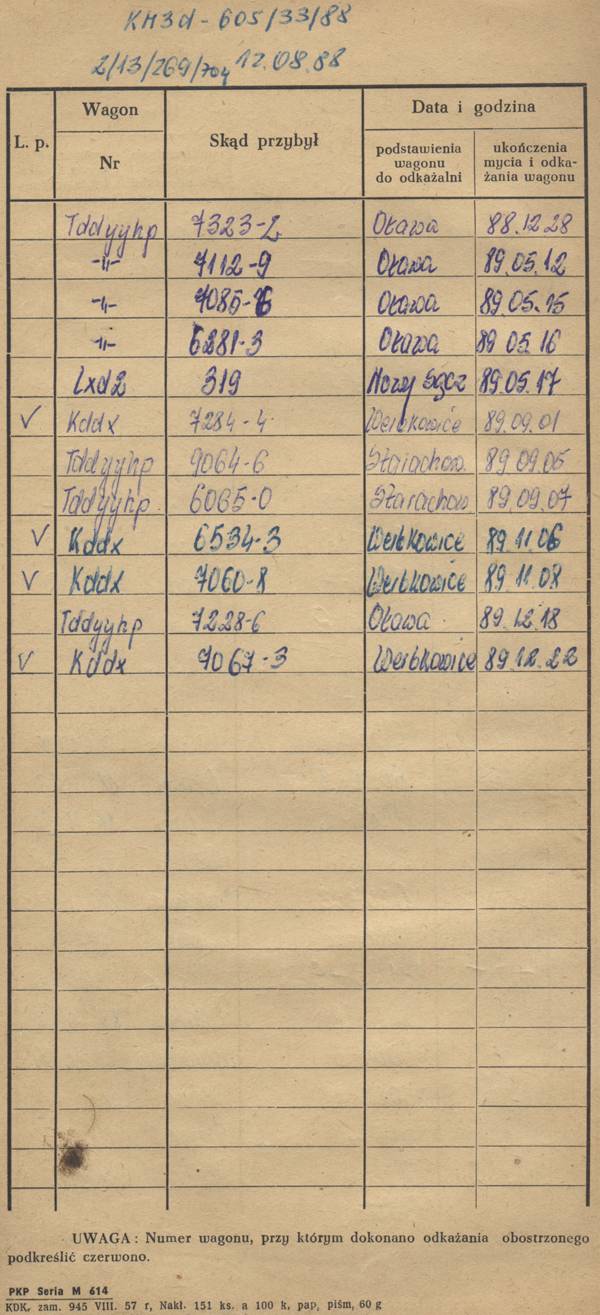 KH3d - 605/33/88
2/13/269/704 12.08.88
L. p.
Wagon
Nr
Skąd przybył
Data i godzina
podstawienia
wagonu
do odkażalni
ukończenia
mycia i odka-
żania wagonu
Tddyyhp 7323-2 Oława 88.12.28
-"- 7112-9 Oława 89.05.12
-"- 7085-6 Oława 89.05.15
-"- 6281-3 Oława 89 05.16
Lxd2 319 Nowy Sącz 89.05.17
✓ Kddx 7284-4 Werbkowice 89.09.01
Tddyyhp 9064-6 Starachow. 89.09.05
Tddyyhp 6065-0 Starachow 89.09.07
✓ Kddx 6534-3 Werbkowice 89.11.06
✓ Kddx 7060-8 Werbkowice 89.11.08
Tddyyhp 7228-6 Oława 89.12.18
✓ Kddx 9067-3 Werbkowice 89.12.22
UWAGA : Numer wagonu, przy którym dokonano odkażania obostrzonego
podkreślić czerwono.
PKP Seria M 614
KDK, zam. 945 VIII. 57 r, Nakł. 151 ks. a 100 k, pap, piśm, 60 g